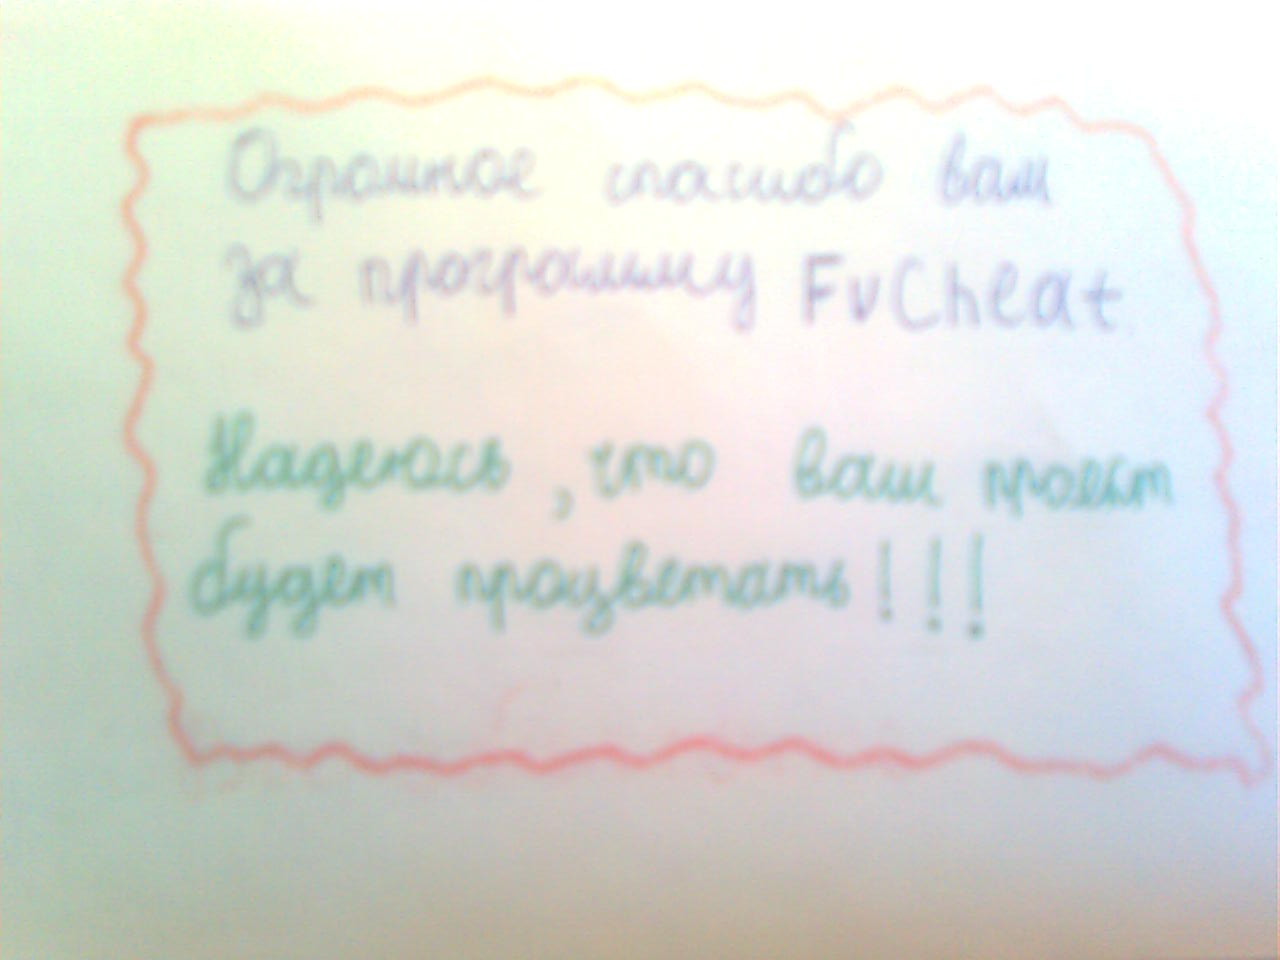 Огромное спасибо вам
за программу FvCheat
Надеюсь, что ваш проект
будет процветать!!!